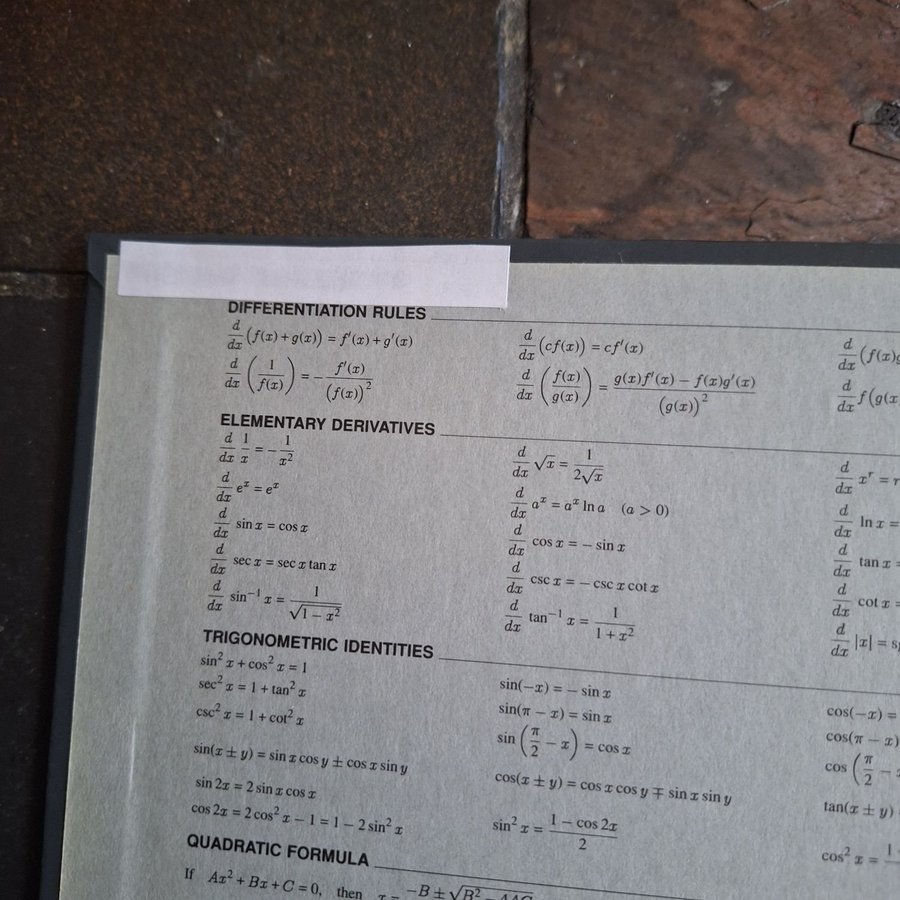 DIFFERENTIATION RULES
d/dx (f(x) + g(x)) = f′(x) + g′(x)    d/dx (cf(x)) = cf′(x)    d/dx (f(x)g
d/dx (1/f(x)) = − f′(x)/(f(x))²    d/dx (f(x)/g(x)) = (g(x)f′(x) − f(x)g′(x))/(g(x))²    d/dx f(g(x
ELEMENTARY DERIVATIVES
d/dx 1/x = − 1/x²    d/dx √x = 1/(2√x)    d/dx xʳ = r
d/dx eˣ = eˣ    d/dx aˣ = aˣ ln a (a > 0)    d/dx ln x =
d/dx sin x = cos x    d/dx cos x = − sin x    d/dx tan x =
d/dx sec x = sec x tan x    d/dx csc x = − csc x cot x    d/dx cot x =
d/dx sin⁻¹ x = 1/√(1 − x²)    d/dx tan⁻¹ x = 1/(1 + x²)    d/dx |x| = s
TRIGONOMETRIC IDENTITIES
sin² x + cos² x = 1    sin(−x) = − sin x    cos(−x) =
sec² x = 1 + tan² x    sin(π − x) = sin x    cos(π − x)
csc² x = 1 + cot² x    sin (π/2 − x) = cos x    cos (π/2 −
sin(x ± y) = sin x cos y ± cos x sin y    cos(x ± y) = cos x cos y ∓ sin x sin y    tan(x ± y)
sin 2x = 2 sin x cos x
cos 2x = 2 cos² x − 1 = 1 − 2 sin² x    sin² x = (1 − cos 2x)/2    cos² x = 1
QUADRATIC FORMULA
If Ax² + Bx + C = 0, then x = −B ± √B² − 4AC